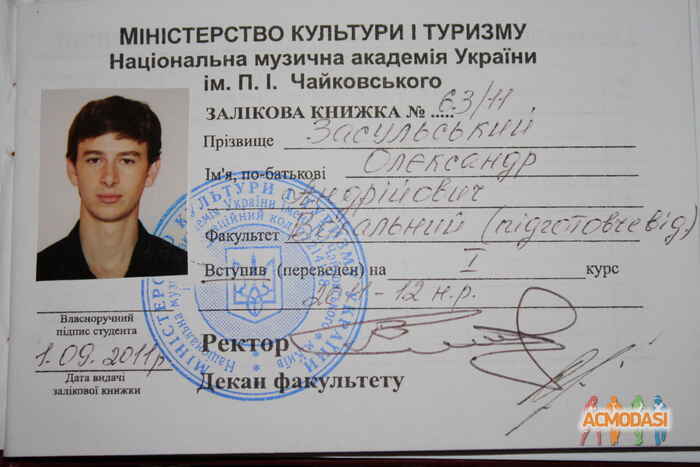 МІНІСТЕРСТВО КУЛЬТУРИ І ТУРИЗМУ
Національна музична академія України
ім. П. І. Чайковського
ЗАЛІКОВА КНИЖКА № 63/11
Прізвище Засульський
Ім'я, по-батькові Олександр
Андрійович
Факультет Вокальний (підготовче від)
Вступив (переведен) на I курс
2011-12 н.р.
Власноручний
підпис студента
Ректор
1.09.2011р
Декан факультету
Дата видачі
залікової книжки
ACMODASI